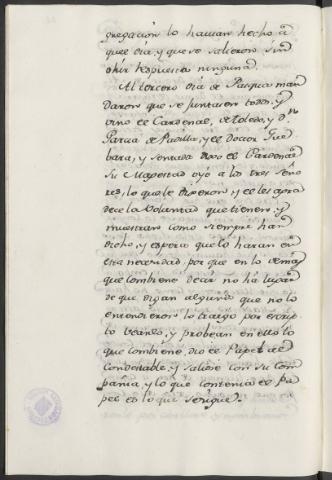 gregacion lo havian hecho a
quel dia, y que se salieron sin
ohir respuesta ninguna.
Al tercero dia de Pasqua man
daron que se juntasen todos, y
vino el Cardenal, de Toledo, y Dn.
Garcia de Padilla, y el Doctor Gue
bara, y sentado dijo el Cardenal
Su Magestad oyò a los tres Seño
res, lo que le dijeron, y él les agra
dece la Voluntad que tienen, y
muestran como siempre han
dicho, y espera que lo haran en
esta necesidad por que en lo demas
que combiene decir no hà lugar
de que digan algunos que no lo
entendieron lo traigo por escrip
to veanlo, y probean en ello lo
que combiene, dio el Papel al
Condestable, y saliose con su com
pañia, y lo que contenia el pa
pel es lo que sengue.